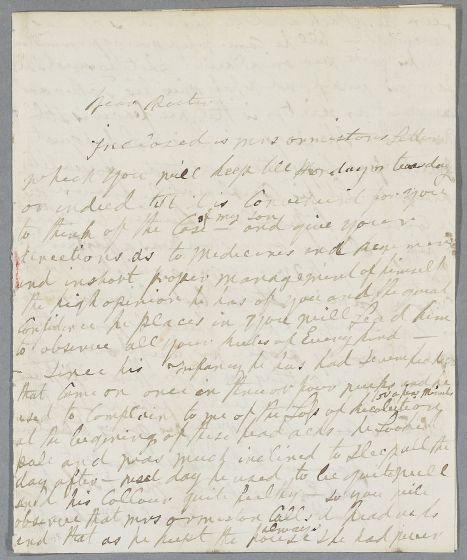 Dear Doctor
Inclosed is Mrs ormistons
which you will keep till monday or tuesday
or indeed till it is Convenient for you
to think of the Case of my Son - and give your
directions as to Medicines and
and in short proper management of himself
the high opinion he has of you and the great
Confidence he places in you will lead him
to observe all your Rules of Every kind -
- Since his infancy he has had
that Came on once in three or four weeks and he
used to Complain to me of the Loss of Recollection for a few Minutes
at the beginning of these headachs - he Looked
pale and was much inclined to Sleep all the
day after - next day he used to be quite well
and his Collour quite healthy - so you will
observe that mrs ormiston Calls headachs
and that as he kept the house always She had never